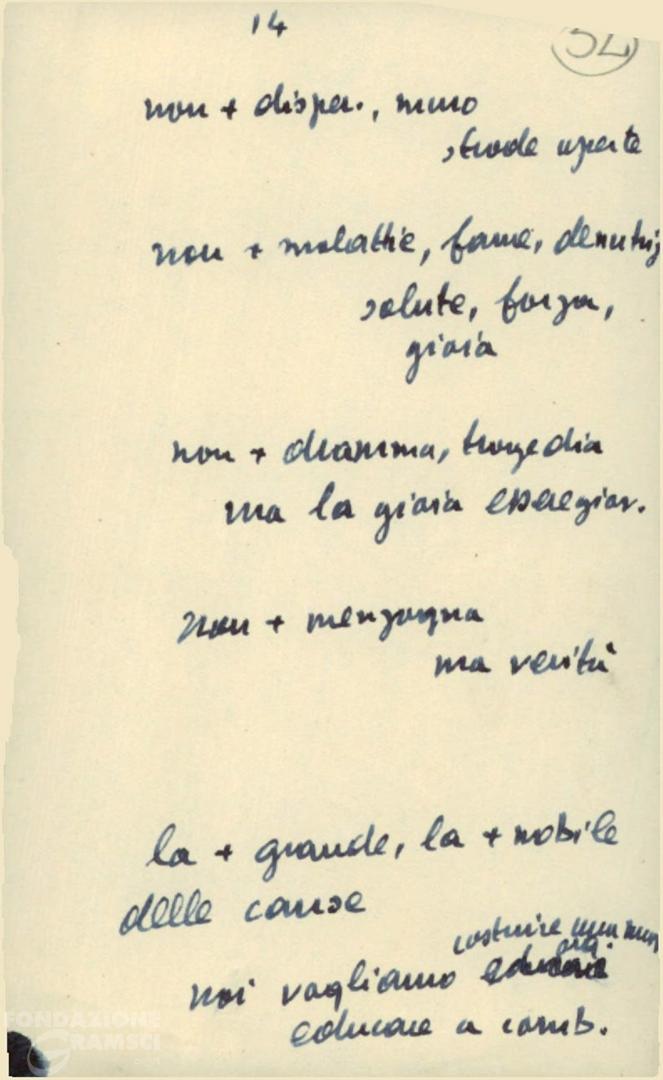 14
52
non + disper., muro
strade aperte
non + malattie, fame, denutriz
salute, forza,
gioia
non + dramma, tragedia
ma la gioia essere giov.
non + menzogna
ma verità
la + grande, la + nobile
delle cause
costruire una nuova
noi vogliamo
educare a comb.
FONDAZIONE
GRAMSCI